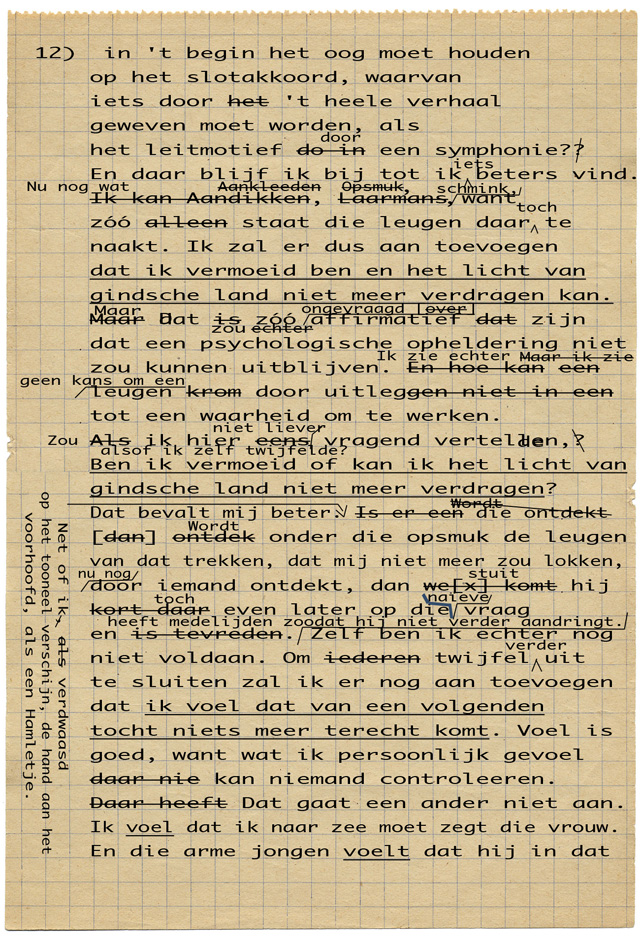 12) in 't begin het oog moet houden
op het slotakkoord, waarvan
iets door het 't heele verhaal
geweven moet worden, als
door
het leitmotief do in een symphonie??
iets
En daar blijf ik bij tot ik beters vind.
Nu nog wat Aankleeden Opsmuk, schmink,
Ik kan Aandikken, Laarmans, want
toch
zóó alleen staat die leugen daar te
naakt. Ik zal er dus aan toevoegen
dat ik vermoeid ben en het licht van
gindsche land niet meer verdragen kan.
Maar ongevraagd over
Maar D dat is zóó affirmatief dat zijn
zou echter
dat een psychologische opheldering niet
Ik zie echter Maar ik zie
zou kunnen uitblijven. En hoe kan een
geen kans om een
leugen krom door uitleggen niet in een
tot een waarheid om te werken.
niet liever
Zou Als ik hier eens vragend vertellen,?
de
alsof ik zelf twijfelde?
Ben ik vermoeid of kan ik het licht van
gindsche land niet meer verdragen?
Wordt
Dat bevalt mij beter. Is er een die ontdekt
Wordt
[dan] ontdek onder die opsmuk de leugen
van dat trekken, dat mij niet meer zou lokken,
nu nog stuit
door iemand ontdekt, dan we[x] komt hij
toch naieve
kort daar even later op die vraag
heeft medelijden zoodat hij niet verder aandringt.
en is tevreden. Zelf ben ik echter nog
verder
niet voldaan. Om iederen twijfel uit
te sluiten zal ik er nog aan toevoegen
dat ik voel dat van een volgenden
tocht niets meer terecht komt. Voel is
goed, want wat ik persoonlijk gevoel
daar nie kan niemand controleeren.
Daar heeft Dat gaat een ander niet aan.
Ik voel dat ik naar zee moet zegt die vrouw.
En die arme jongen voelt dat hij in dat
Net of ik, als verdwaasd
op het tooneel verschijn, de hand aan het
voorhoofd, als een Hamletje.